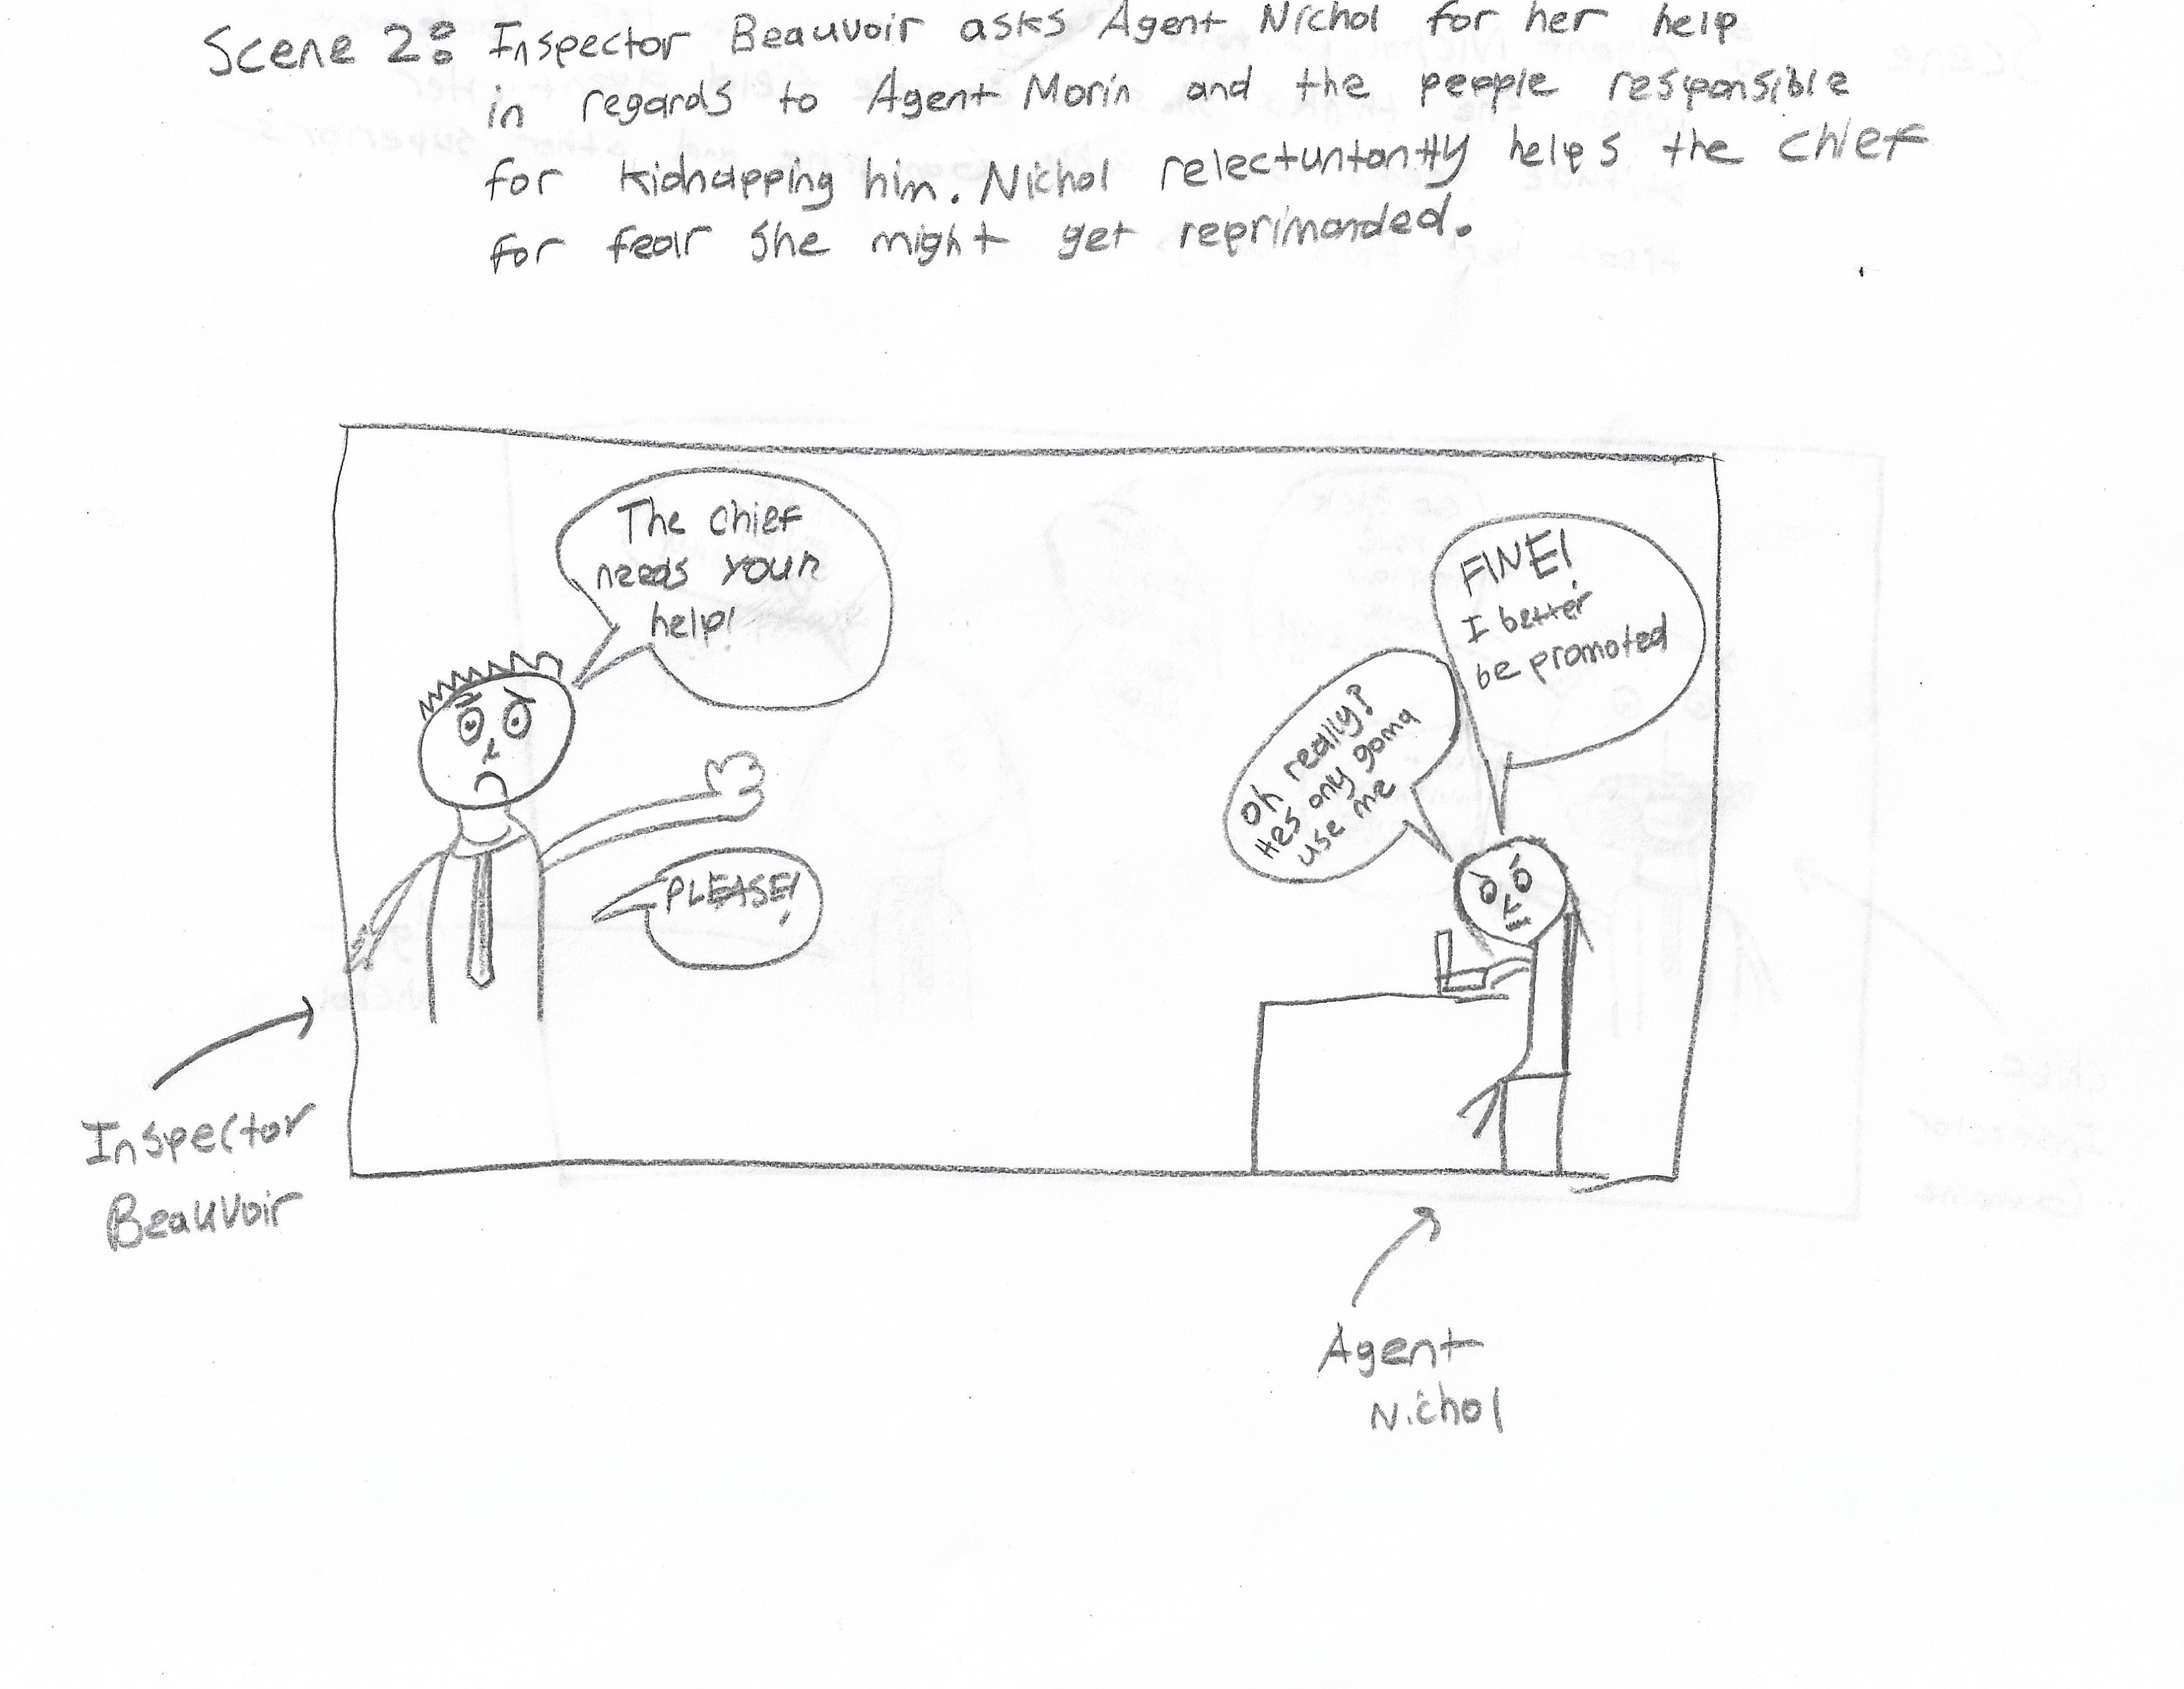 Scene 2: Inspector Beauvoir asks Agent Nichol for her help
in regards to Agent Morin and the people responsible
for kidnapping him. Nichol relectuntantly helps the chief
for fear she might get reprimanded.
The chief
needs your
help!
PLEASE!
Oh really?
Hes only gonna
use me
FINE!
I better
be promoted
Inspector
Beauvoir
Agent
Nichol